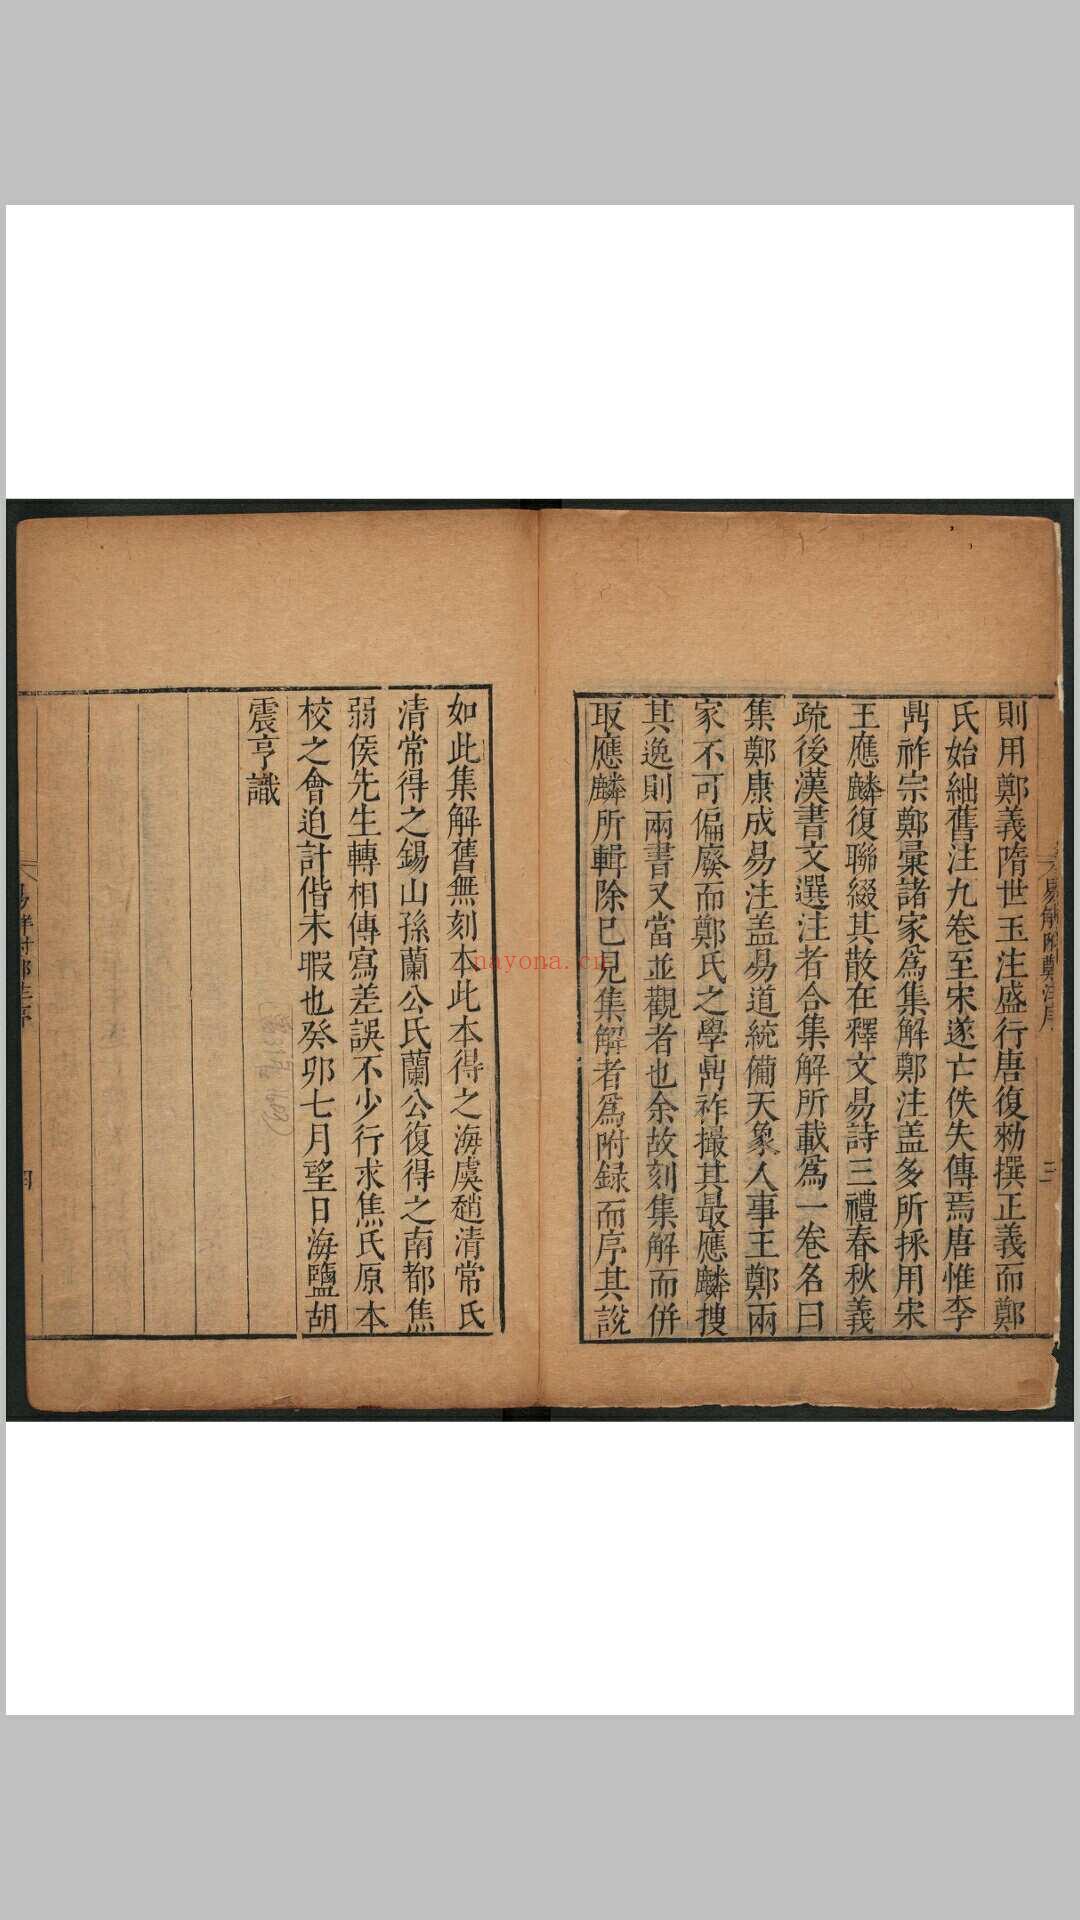 則用鄭義隋世王注盛行唐復勑撰正義而鄭
氏始絀舊注九卷至宋遂亡佚失傳焉唐惟李
鼎祚宗鄭彙諸家爲集解鄭注盖多所採用宋
王應麟復聯綴其散在釋文易詩三禮春秋義
疏後漢書文選注者合集解所載爲一卷名曰
集鄭康成易注盖易道統備天象人事王鄭兩
家不可偏廢而鄭氏之學鼎祚撮其最應麟搜
其逸則兩書又當並觀者也余故刻集解而併
取應麟所輯除已見集解者爲附録而序其說
易解附鄭注序
二
如此集解舊無刻本此本得之海虞趙清常氏
清常得之錫山孫蘭公氏蘭公復得之南都焦
弱侯先生轉相傳寫差誤不少行求焦氏原本
校之會迫計偕未暇也癸卯七月望日海鹽胡
震亨識
nayona.cn